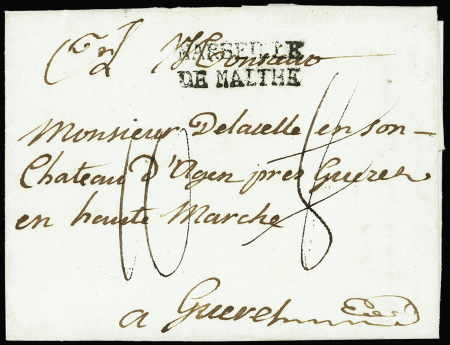 A Monsieur
MARSEILLE
DE MALTHE
Monsieur Delacelle en son
Chateau D'Agen près Gueret
en haute Marche
10 18
a Gueret